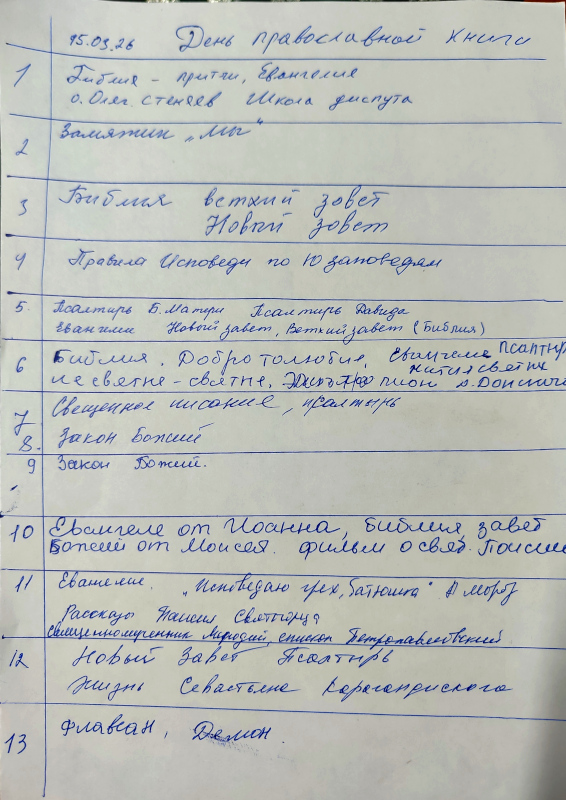 15.03.26 День православной книги
1 Библия - притчи, Евангелие
о. Олег. стеняев Школа диспута
2 Замяжин „мы"
3 Библия ветхий завет
Новый завет
4 Правила Исповеди по 10 заповедям
5. Псалтирь Б. Матери Псалтирь Давида
Евангелие Новый завет, Ветхий завет (Библия)
6 Библия. Добротолюбие, Евангелие Псалтырь
жития святых
не святые - святые,
7 Свещенное писание, псалтырь
8. Закон Божий
9 Закон Божий.
10 Евангеле от Иоанна, библия, завет
Божий от Моисея. фильм о свят. Паисие
11 Евангелие. „Исповедаю грех, батюшка" А мороз
Рассказы Паисия Святогорца
Священномученник Мефодий, епископ Петропавловский
12 Новый Завет Псалтырь
Жизнь Севастьяна Карагандинского
13 Флавиан, Демон.